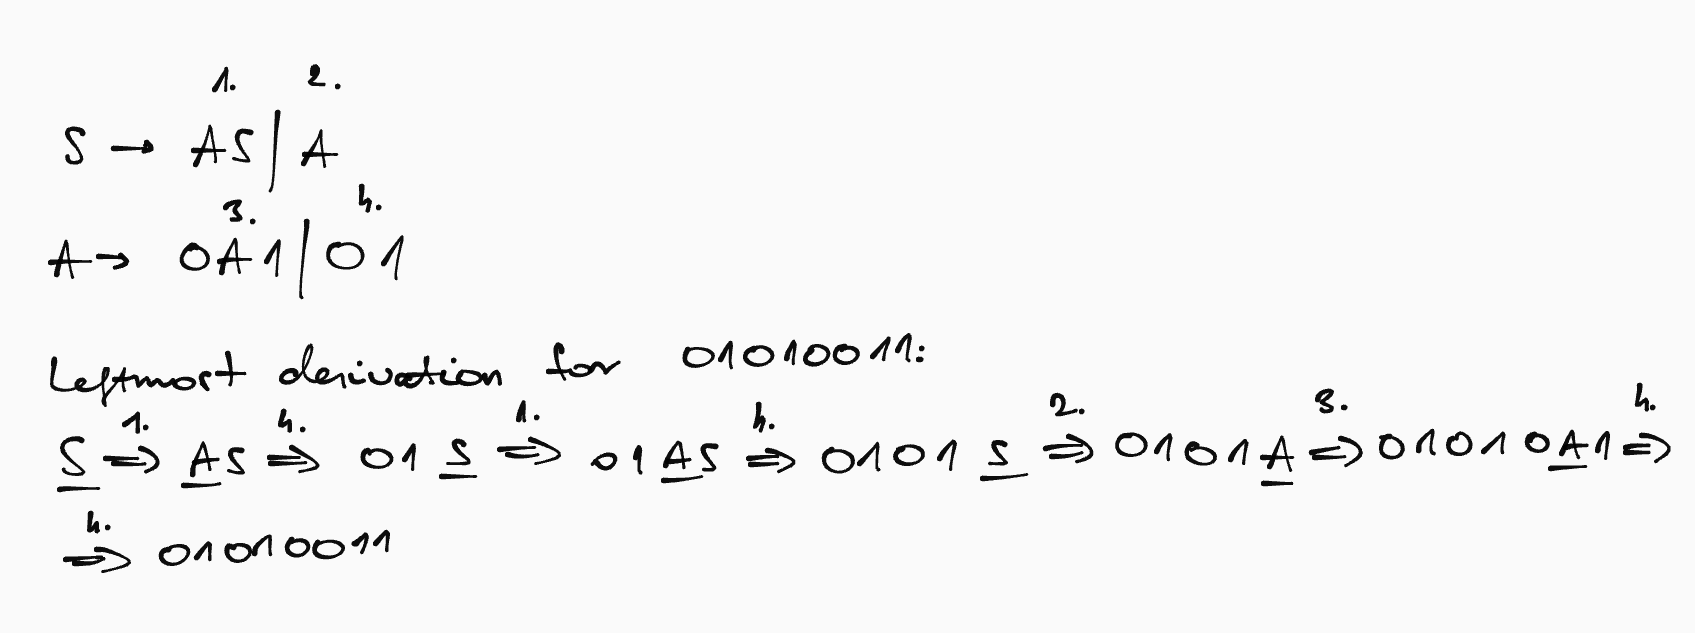 1. 2.
S → AS | A
3. 4.
A → 0A1 | 01
Leftmost derivation for 01010011:
1. 4. 1. 4. 2. 3. 4.
S ⇒ AS ⇒ 01 S ⇒ 01 AS ⇒ 0101 S ⇒ 0101A ⇒ 0101 0A1 ⇒
4.
⇒ 01010011